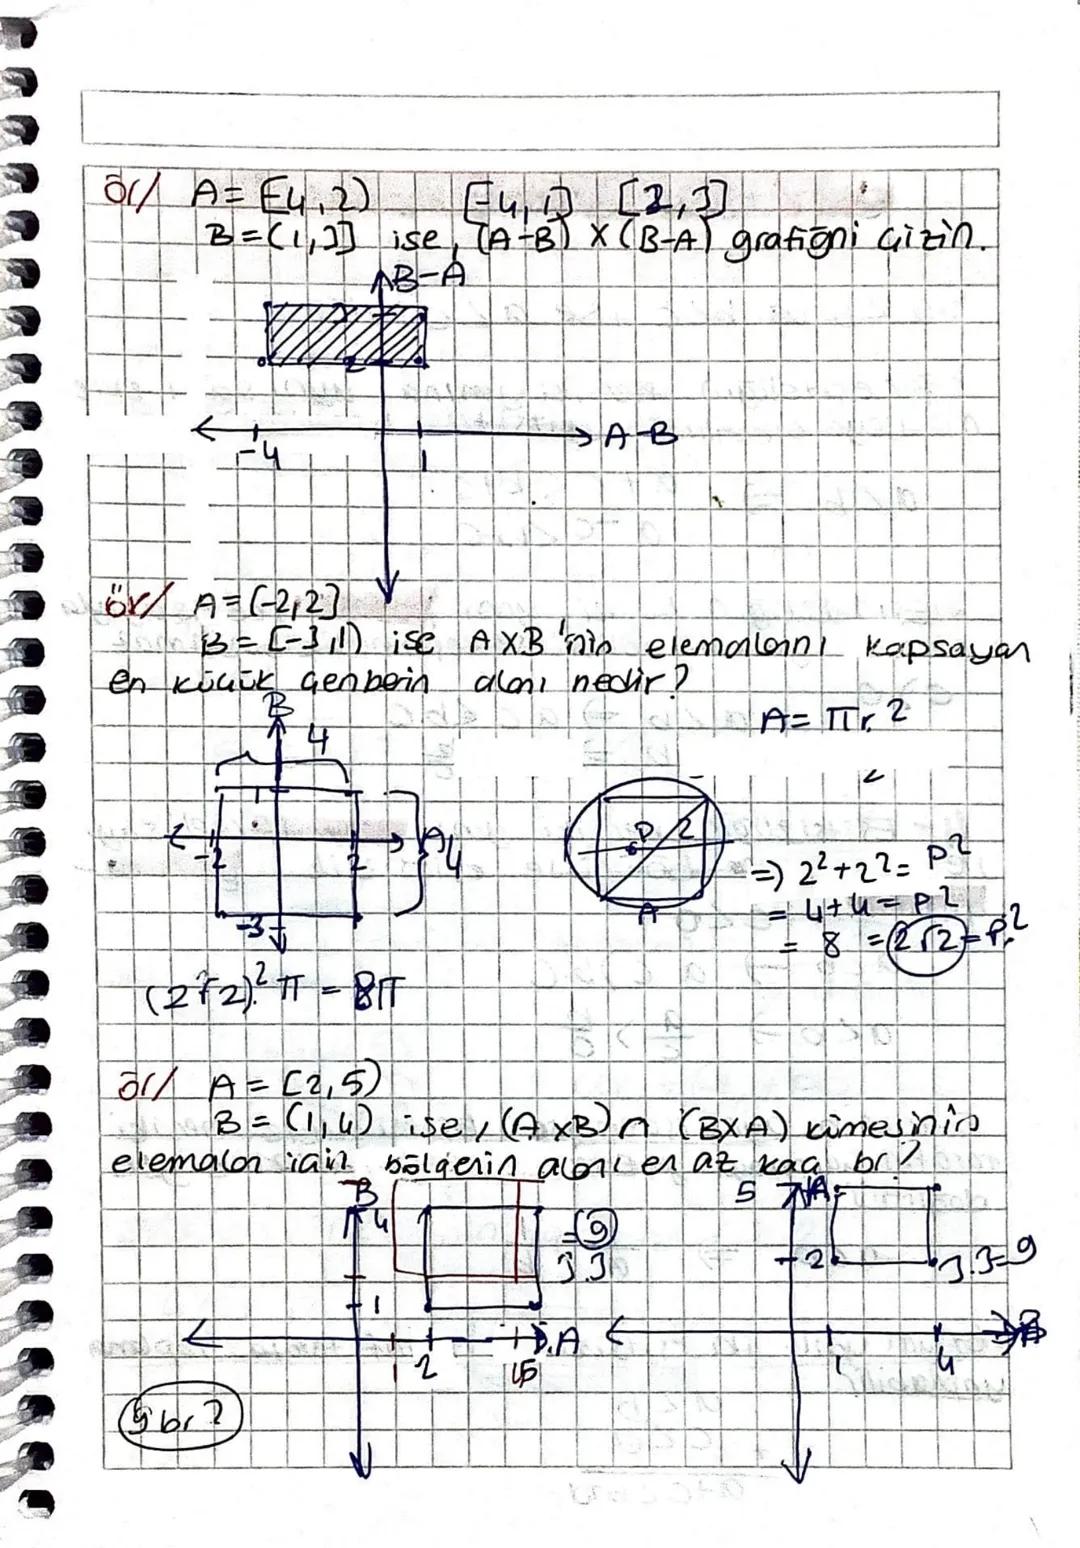 ör/ A = [-4,2) [-4,1] [2,3]
B = (1,3] ise, (A-B) X (B-A) grafiğni çizin.
B-A
3
2
A-B
-4 1
ör/ A = (-2,2]
B = [-3,1) ise AXB'nin elemalarını kapsayan
en küçük çenberin alanı nedir?
B
A = πr²
4
1
A
-2 2
4
-3
P 2
A
=) 2²+2²= P²
= 4+4= P²
= 8 = 2√2 = P²
(2√2)².π = 8π
ör/ A = [2,5)
B = (1,4) ise, (AxB) ∩ (BXA) kümesinin
elemaları için bölgenin alanı en az kaç br?
B
4
= 9
3.3
1
A
1 2
5 A
2
3.3=9
B
1 4
br?